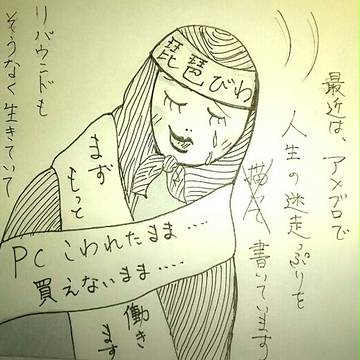 最近は、アメブロで
人生の迷走っぷりを
書いています
琵琶びわ
まず
もっと
働きます
PCこわれたまま‥‥
買えないまま‥‥
リバウンドも
そうなく生きていて